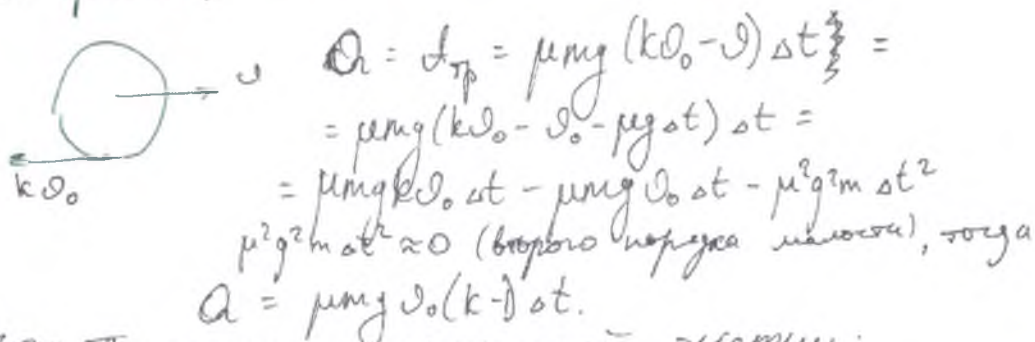 Q = A_тр = μmg (kϑ₀ - ϑ) Δt =
ϑ
= μmg (kϑ₀ - ϑ₀ - μgΔt) Δt =
kϑ₀
= μmgkϑ₀ Δt - μmgϑ₀ Δt - μ²g²m Δt²
μ²g²m Δt² ≈ 0 (второго порядка малости), тогда
Q = μmgϑ₀(k-1) Δt.